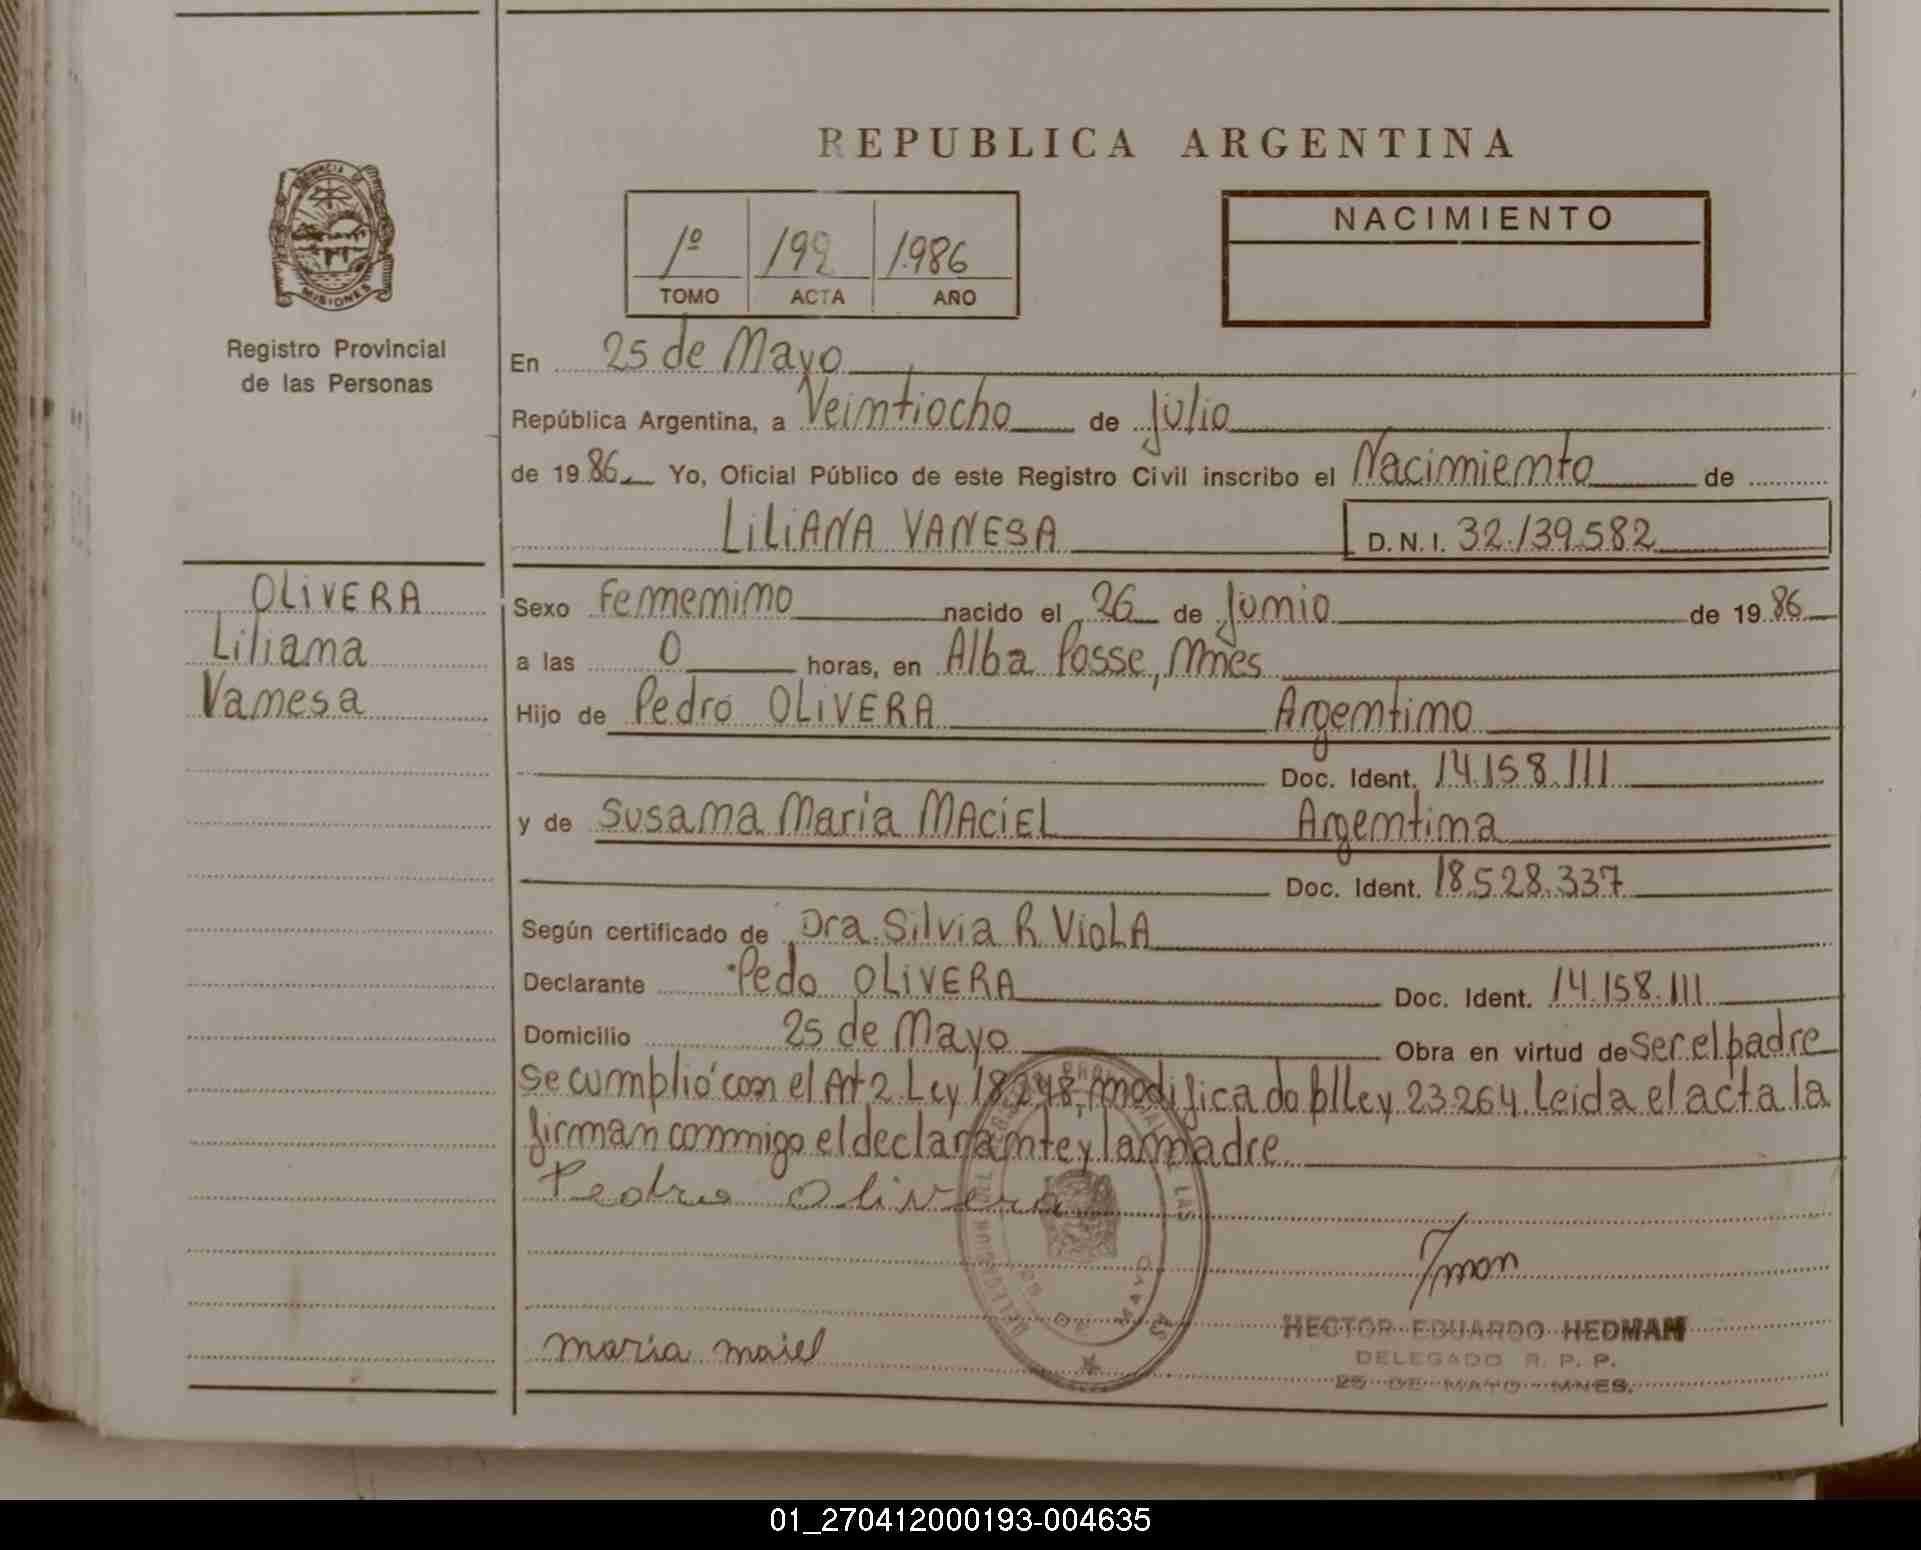 REPUBLICA ARGENTINA
PROVINCIA DE
MISIONES
Registro Provincial
de las Personas
1º 192 1986
TOMO ACTA AÑO
NACIMIENTO
En 25 de Mayo
República Argentina, a Veintiocho de Julio
de 19 86 Yo, Oficial Público de este Registro Civil inscribo el Nacimiento de
LILIANA VANESA D.N.I. 32.139.582
OLIVERA
Liliana
Vanesa
Sexo Femenino nacido el 26 de Junio de 19 86
a las 0 horas, en Alba Posse, Mnes
Hijo de Pedro OLIVERA Argentino
Doc. Ident. 14.158.111
y de Susana Maria MACIEL Argentina
Doc. Ident. 18.528.337
Según certificado de Dra. Silvia R. VIOLA
Declarante Pedo OLIVERA Doc. Ident. 14.158.111
Domicilio 25 de Mayo Obra en virtud de ser el padre
Se cumplió con el Art 2. Ley 18.248, modificado p/Ley 23.264. Leida el acta la
firman conmigo el declarante y la madre
Pedro Olivera
maria maiel
25 DE MAYO
HECTOR EDUARDO HEDMAN
DELEGADO R. P. P.
25 DE MAYO MNES.
01_270412000193-004635